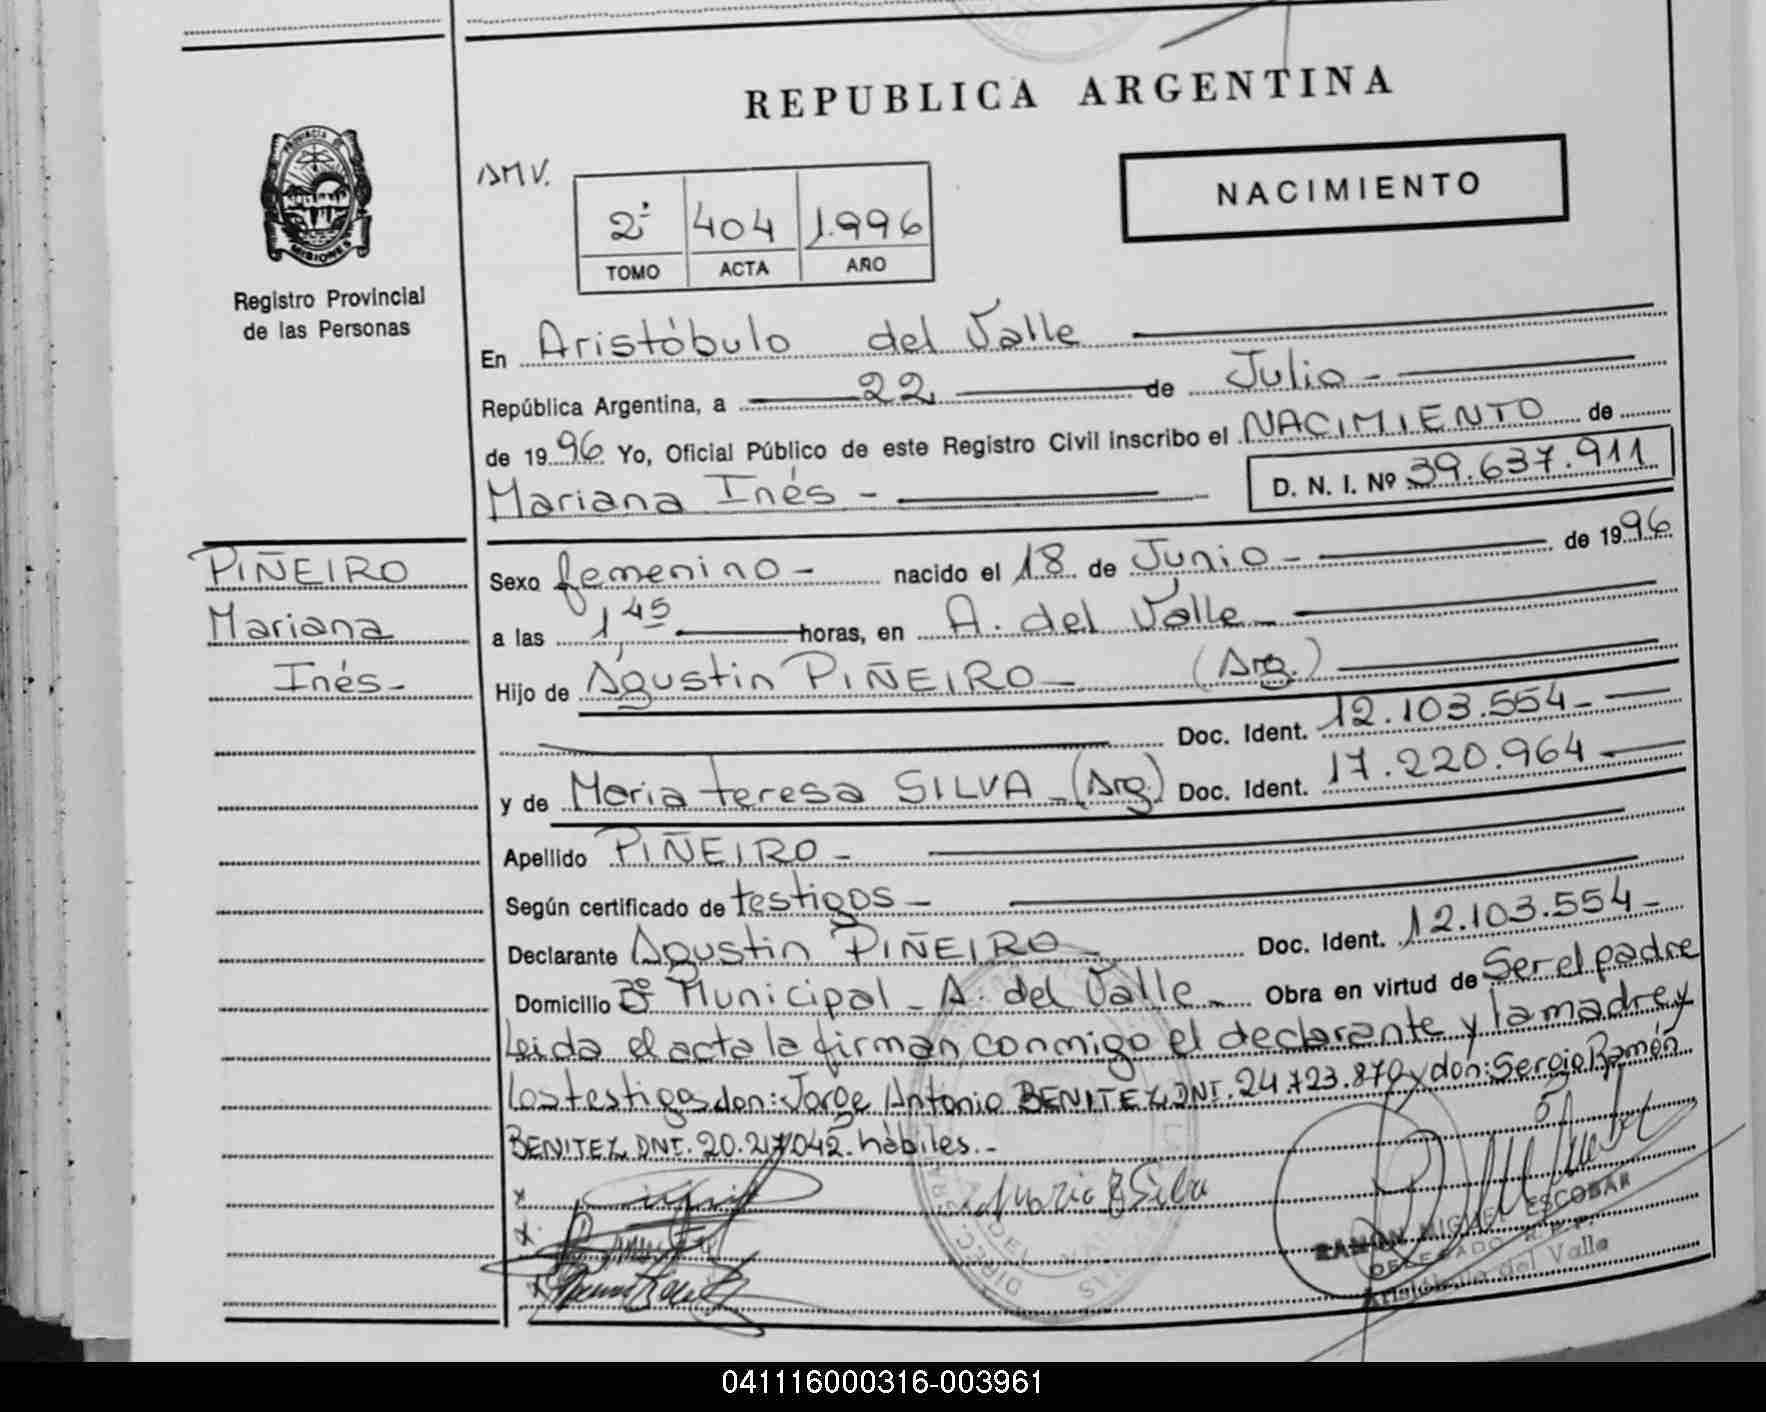 REPUBLICA ARGENTINA
PROVINCIA DE
MISIONES
Registro Provincial
de las Personas
AMV.
2º 404 1.996
TOMO ACTA AÑO
NACIMIENTO
En Aristóbulo del Valle
República Argentina, a 22 de Julio -
de 1996 Yo, Oficial Público de este Registro Civil inscribo el NACIMIENTO de
Mariana Inés - D. N. I. Nº 39.637.911
PIÑEIRO
Mariana
Inés -
Sexo femenino - nacido el 18 de Junio - de 1996
a las 1,45 horas, en A. del Valle -
Hijo de Agustin PIÑEIRO - (Arg.)
Doc. Ident. 12.103.554 -
y de Maria teresa SILVA - (Arg.) Doc. Ident. 17.220.964
Apellido PIÑEIRO -
Según certificado de testigos -
Declarante Agustin PIÑEIRO - Doc. Ident. 12.103.554 -
Domicilio Bº Municipal - A. del Valle - Obra en virtud de Ser el padre
Leida el acta la firman conmigo el declarante y la madre y
los testigos don: Jorge Antonio BENITEZ, DNI. 24.723.870 y don: Sergio Ramón
BENITEZ DNI. 20.217.042. hábiles. -
Silva
RAMON MIGUEL ESCOBAR
DELEGADO R.P.P.
Aristóbulo del Valle
041116000316-003961